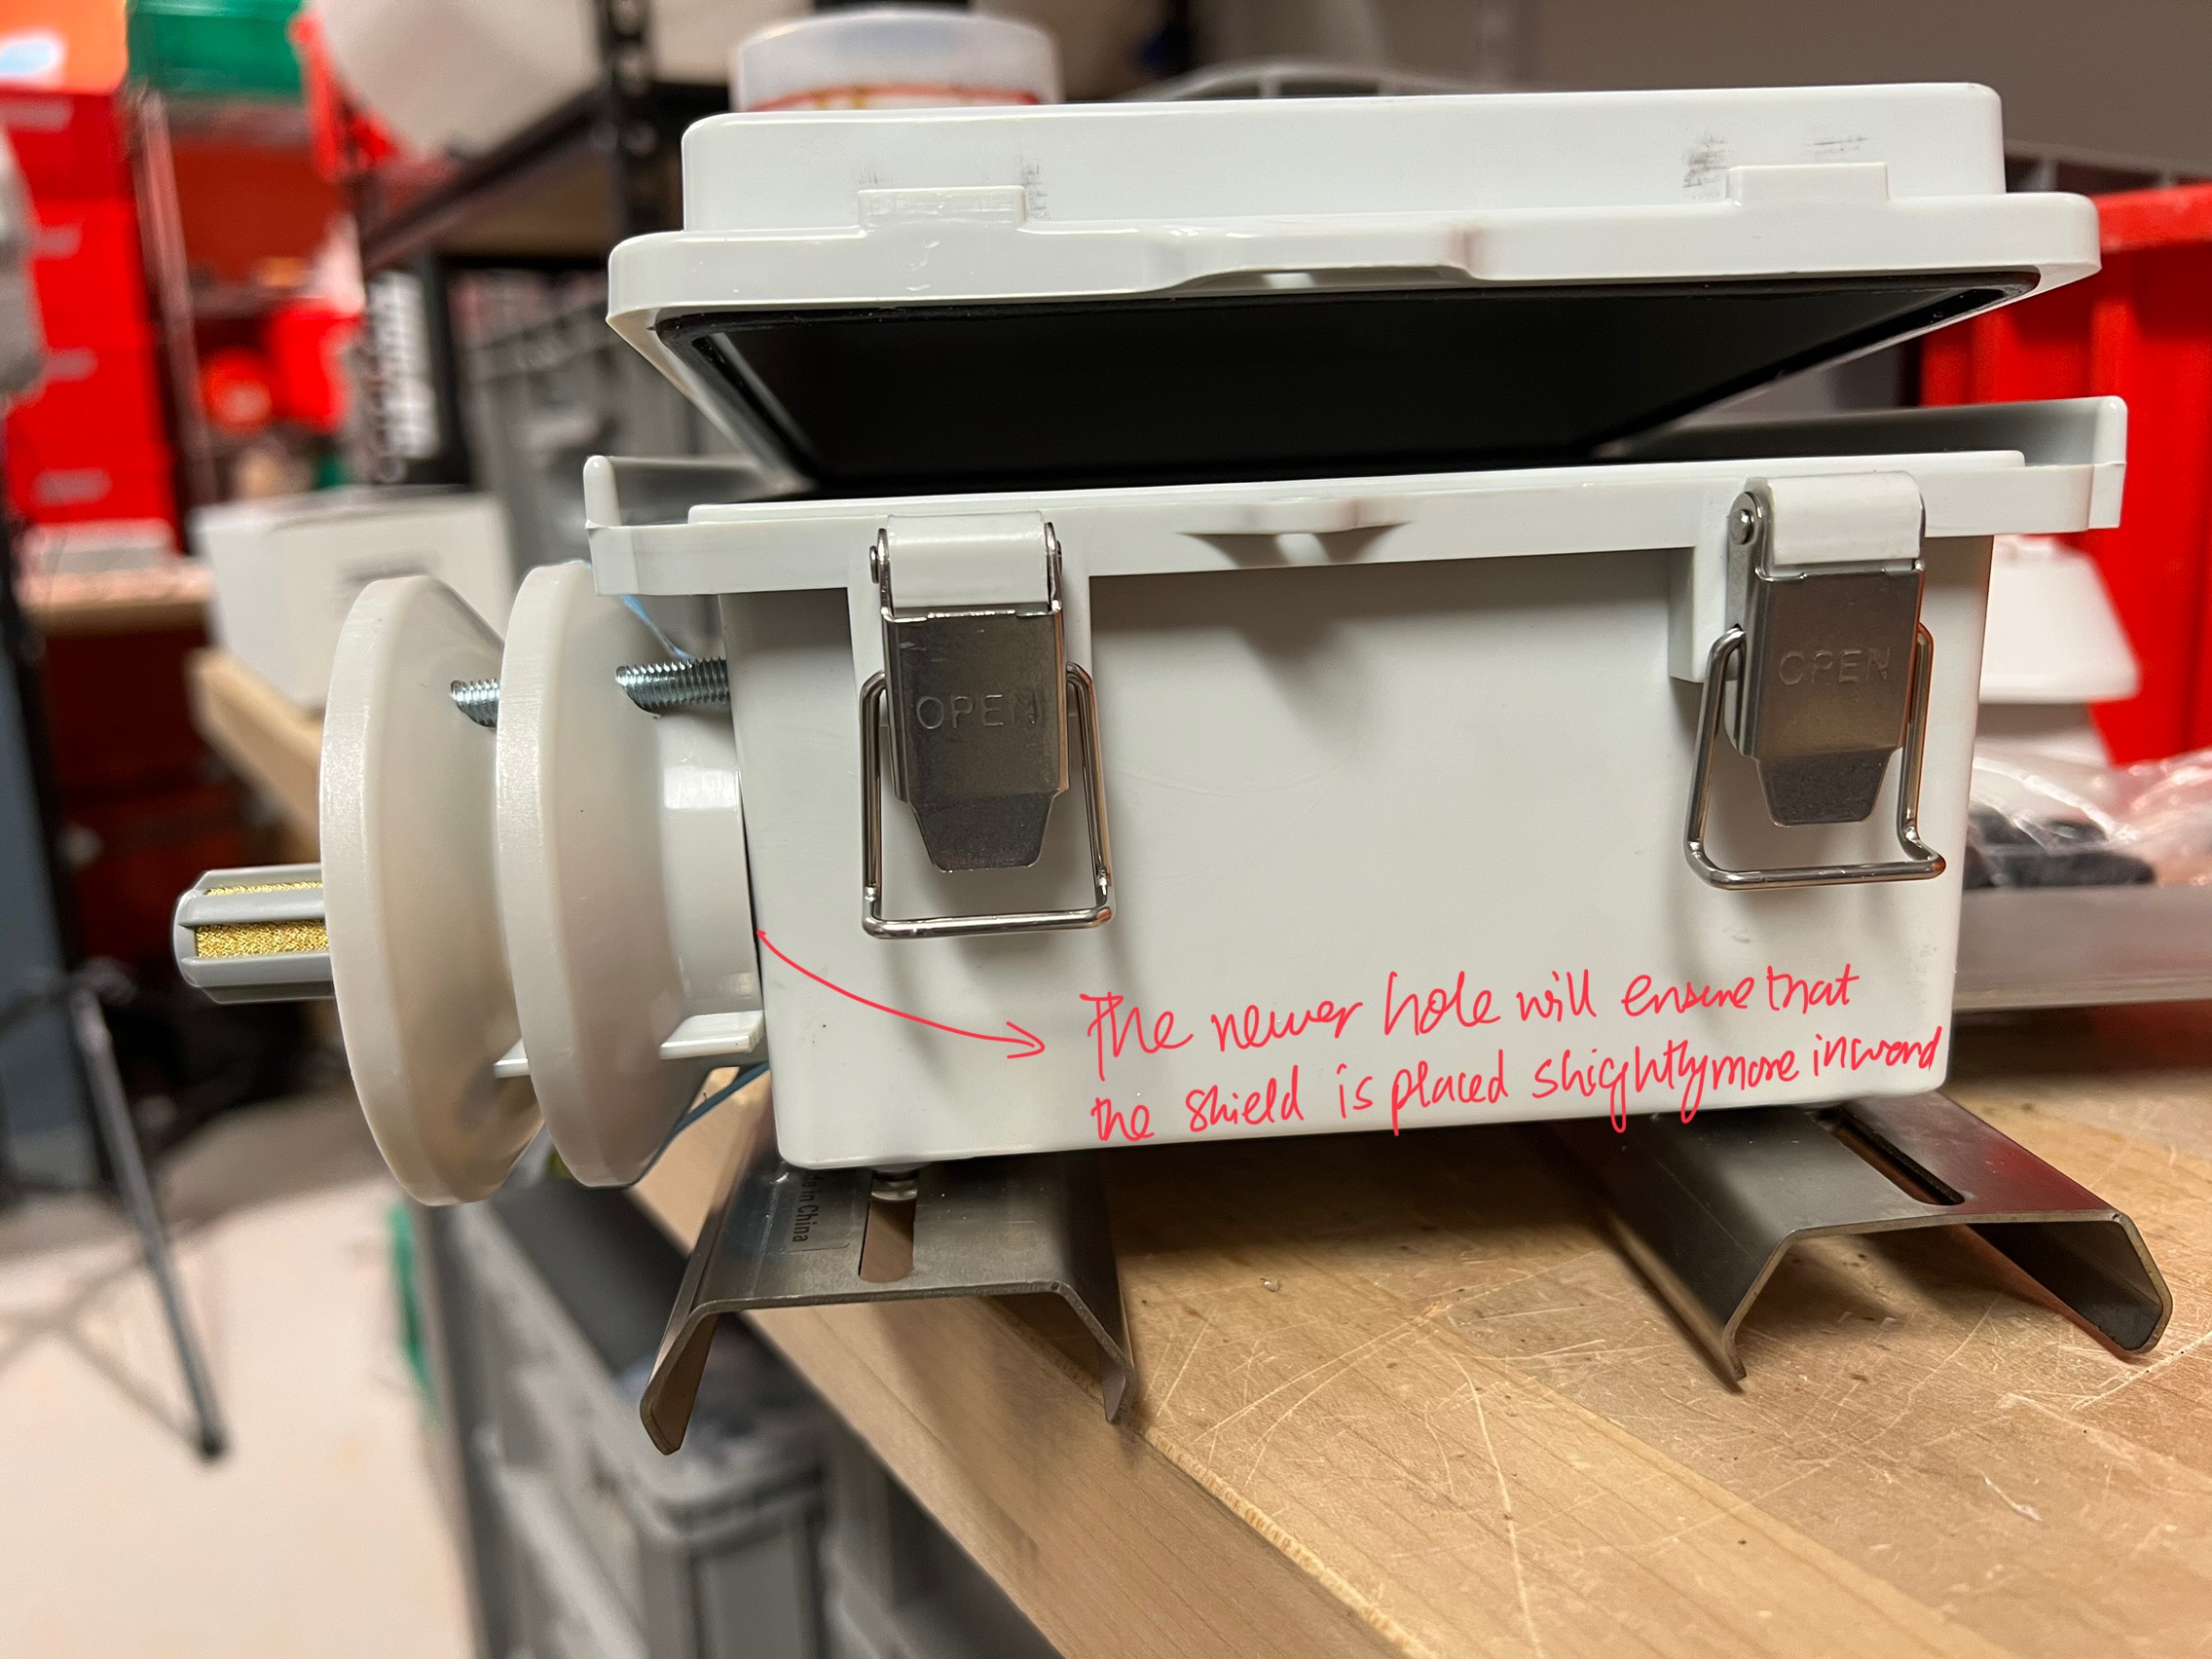 OPEN
OPEN
The newer hole will ensure that
the shield is placed shightly more inward
de in China